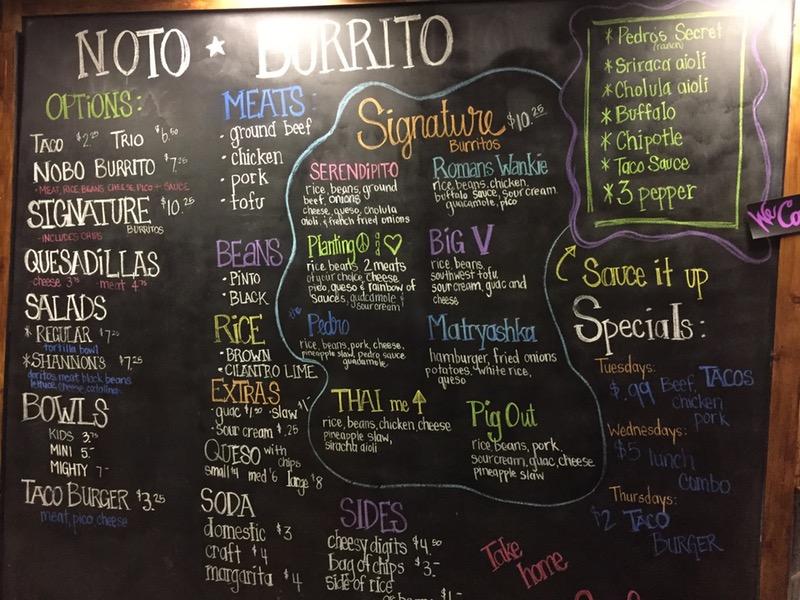 NOTO ★ BURRITO
OPTIONS:
TACO $2.25 TRIO $6.50
NOBO BURRITO $7.25
- MEAT, RICE, BEANS, CHEESE, PICO + SAUCE
SIGNATURE $10.25
BURRITOS
- INCLUDES CHIPS
QUESADILLAS
- cheese 3.75 - meat 4.75
SALADS
* REGULAR $7.25
tortilla bowl
* SHANNON'S $7.25
doritos, meat, black beans
lettuce, cheese, catalina
BOWLS
KIDS 3.75
MINI 5.-
MIGHTY 7-
TACO BURGER $3.25
meat, pico, cheese
MEATS:
• ground beef
• chicken
• pork
• tofu
BEANS
• PINTO
• BLACK
RICE
• BROWN
• CILANTRO LIME
EXTRAS
• guac $1.50 • slaw $1
• sour cream $.25
QUESO with
chips
small $4 med $6 large $8
SODA
domestic $3
craft $4
margarita $4
Signature $10.25
Burritos
SERENDIPITO
rice, beans, ground
beef, onions
cheese, queso, cholula
aioli, & french fried onions
Romans Wankie
rice, beans, chicken,
buffalo sauce, sour cream
guacamole, pico
Planting ☮ : ♡
rice, beans, 2 meats
of your choice, cheese,
pico, queso & rainbow of
sauces, guacamole &
sour cream!
BIG V
rice, beans,
southwest tofu
sour cream, guac and
cheese
Pedro
rice, beans, pork, cheese,
pineapple slaw, pedro sauce
guacamole
Matryashka
hamburger, fried onions
potatoes, white rice,
queso
THAI me ↑
rice, beans, chicken, cheese
pineapple slaw,
siracha aioli
Pig Out
rice, beans, pork,
sour cream, guac, cheese
pineapple slaw
SIDES
cheesy digits $4.50
bag of chips $3.-
side of rice
or beans $1.
Take
home
* Pedro's Secret
(ranch)
* Sriraca aioli
* Cholula aioli
* Buffalo
* Chipotle
* Taco Sauce
* 3 pepper
We Ca
Sauce it up
Specials:
Tuesdays:
$.99 Beef, TACOS
chicken,
pork
Wednesdays:
$5 lunch
combo
Thursdays:
$2 TACO
BURGER